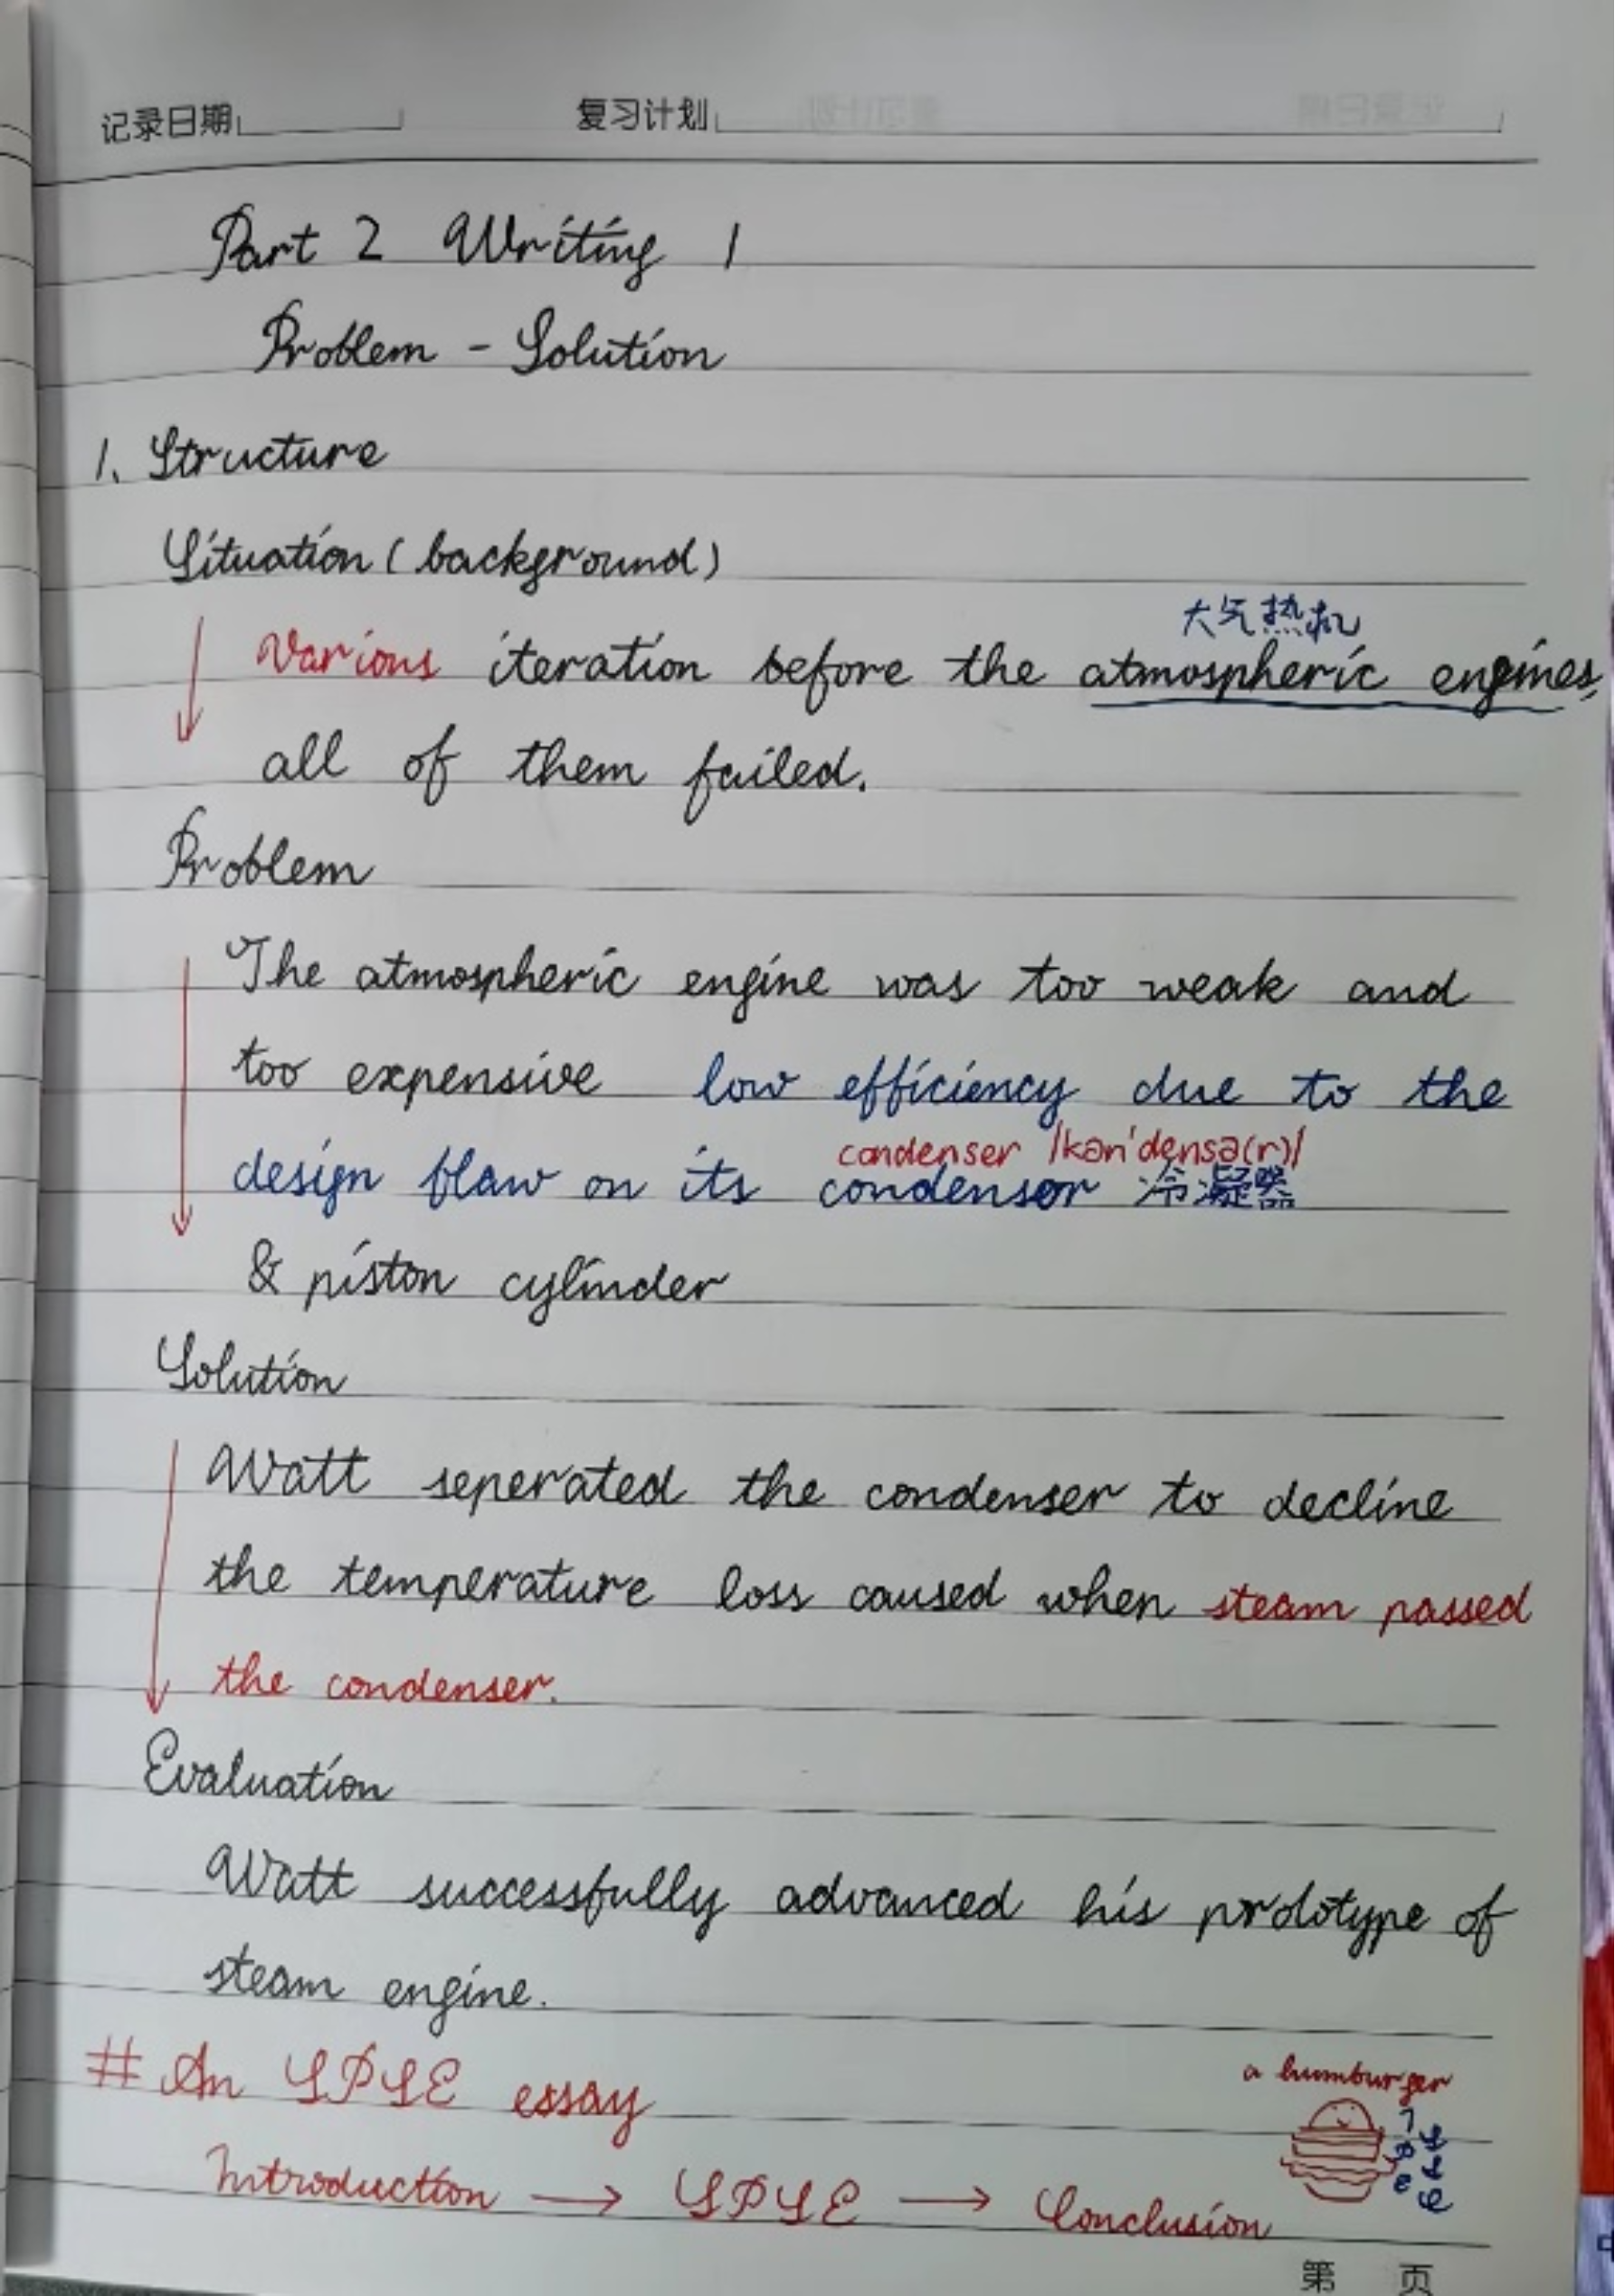 记录日期 复习计划
Part 2 Writing 1
Problem - Solution
1. Structure
Situation (background)
大气热机
Various iteration before the atmospheric engines,
all of them failed.
Problem
The atmospheric engine was too weak and
too expensive low efficiency due to the
condenser /kən'densə(r)/
design flaw on its condensor 冷凝器
& piston cylinder
Solution
Watt seperated the condenser to decline
the temperature loss caused when steam passed
the condenser.
Evaluation
Watt successfully advanced his prototype of
steam engine.
# An SPSE essay
a humburger
Introduction → SPSE → Conclusion
第 页